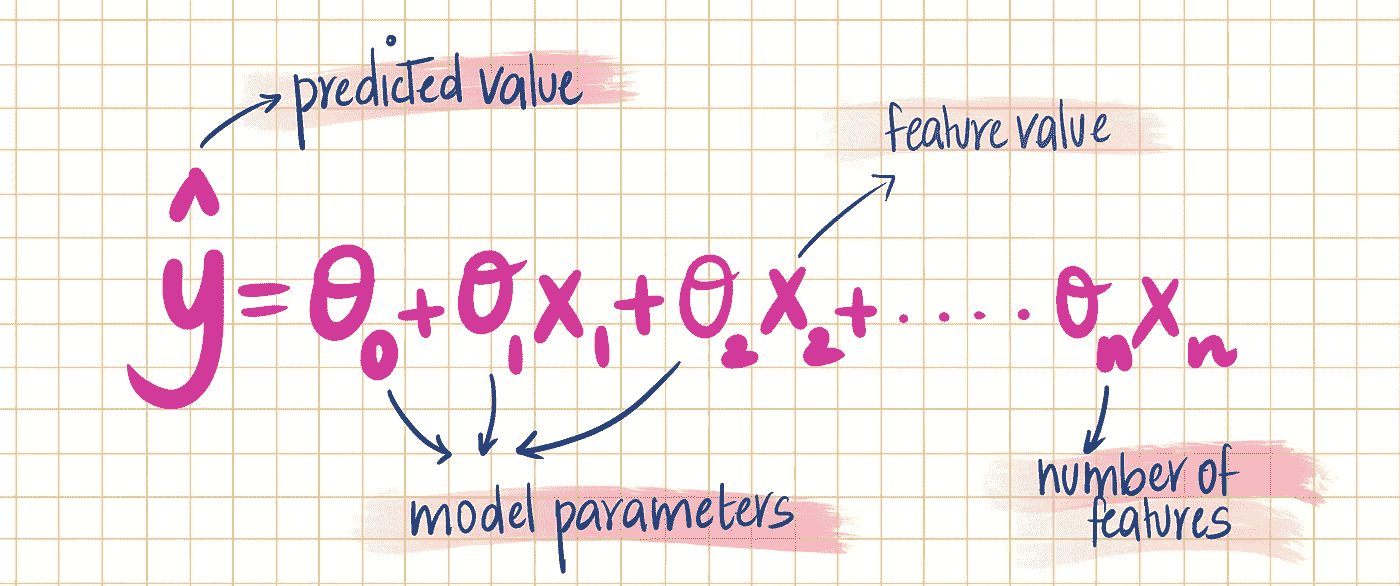 predicted value
feature value
ŷ = θ₀ + θ₁x₁ + θ₂x₂ + .... θₙxₙ
model parameters
number of
features